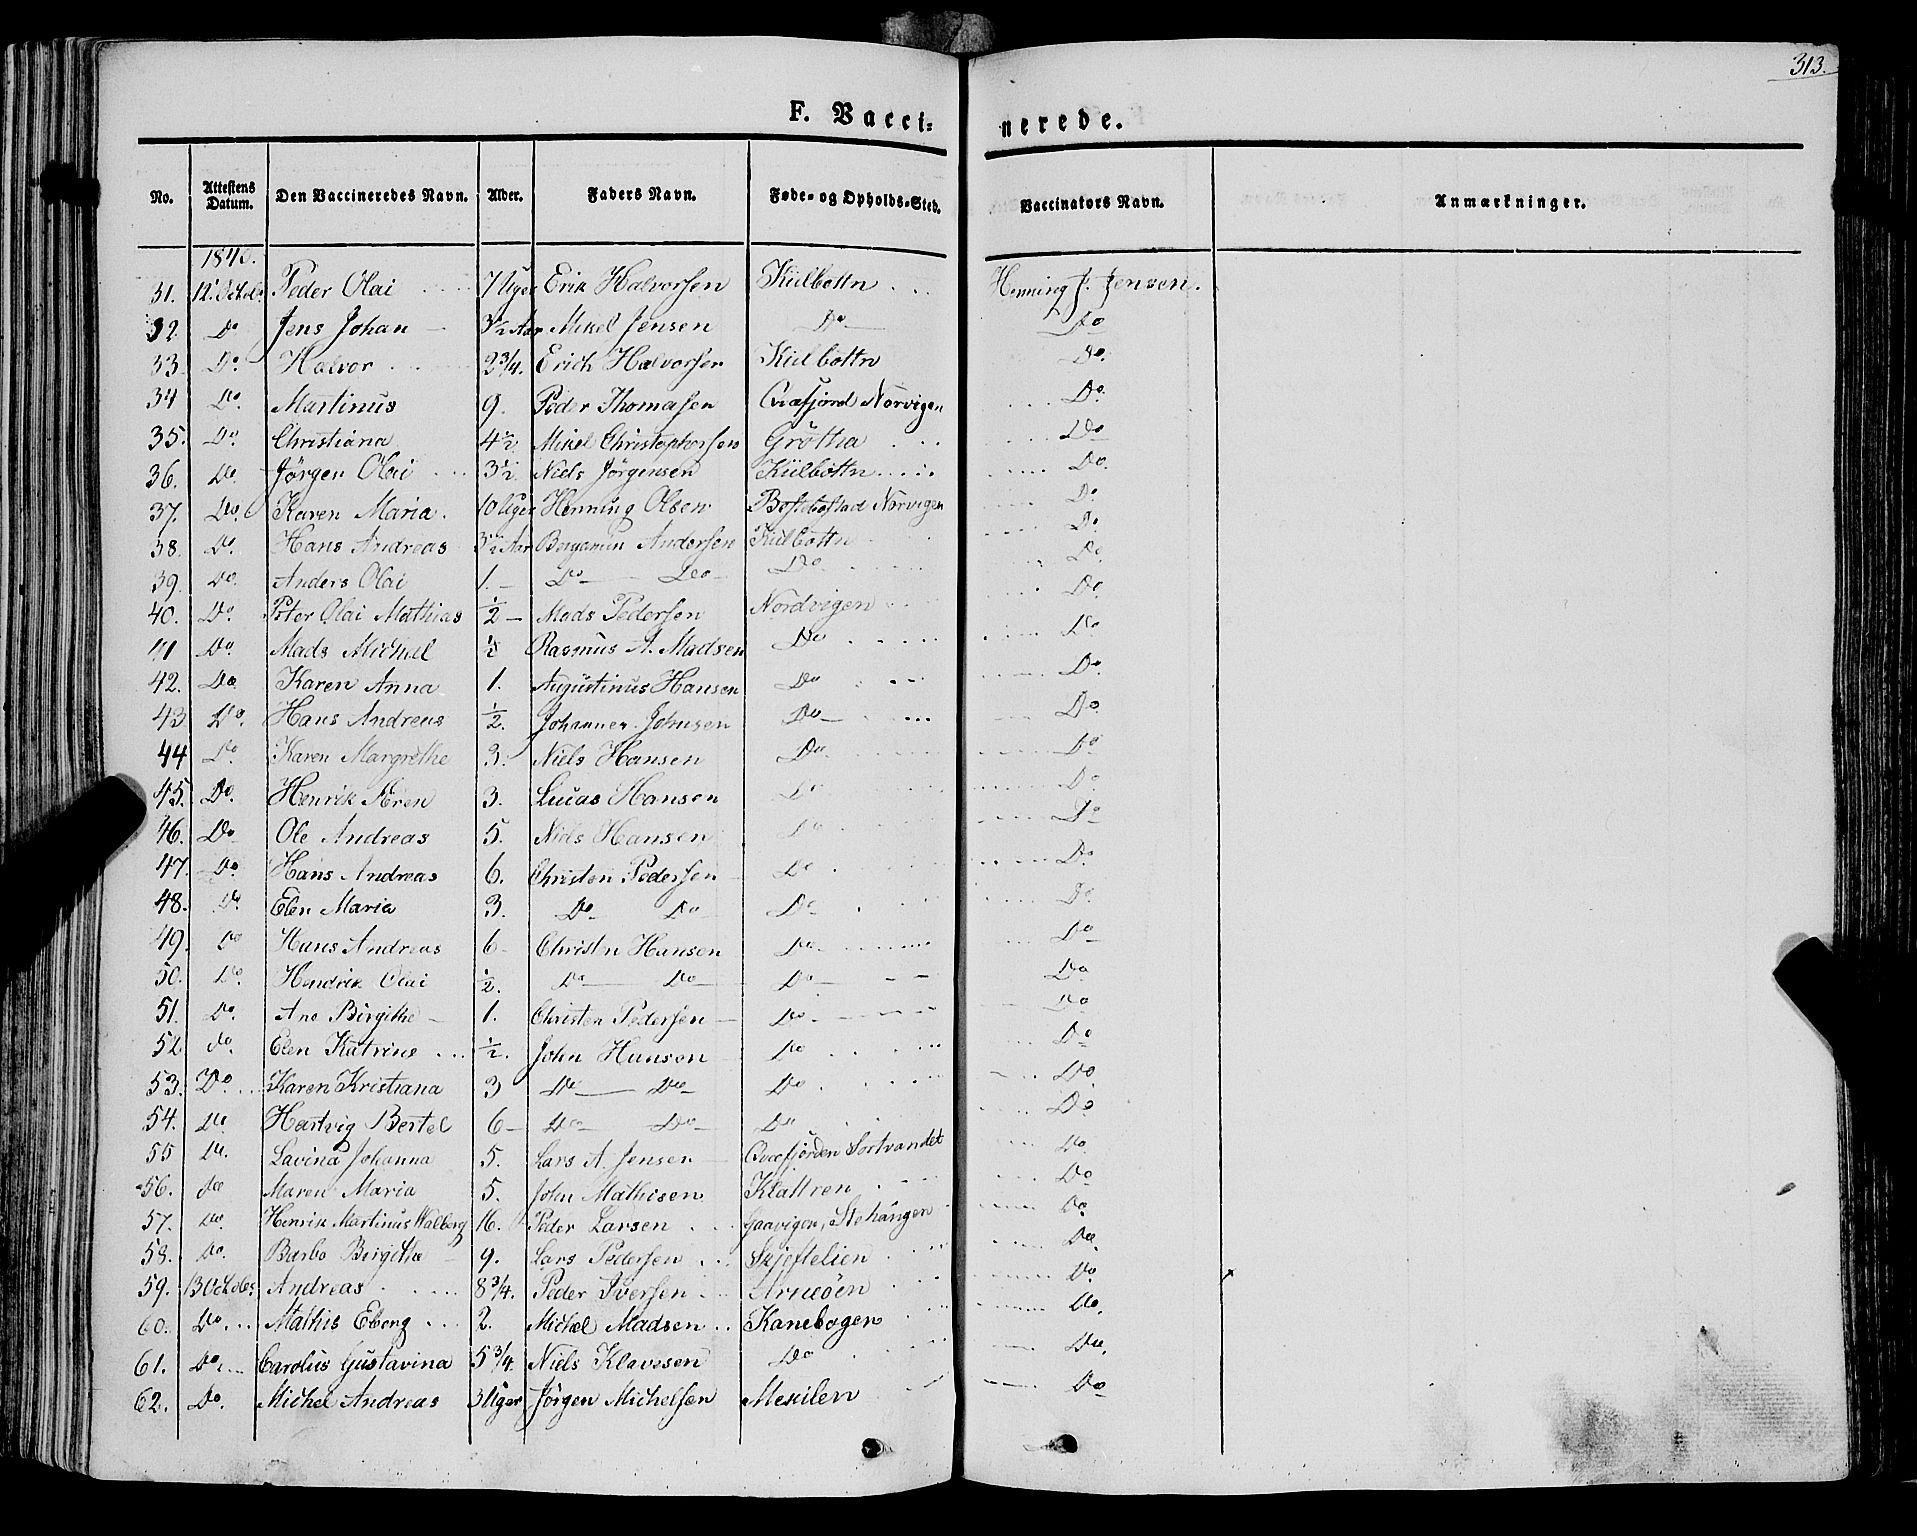 313.
F. Vacci= nerede.
No. Attestens Datum. Den Vaccineredes Navn. Alder. Faders Navn. Føde- og Opholds-Sted. Vaccinators Navn. Anmærkninger.
1840.
31. 12. Octobr Peder Olai 7 Uger Erik Halvorsen Kiilbottn Henning J. Jensen.
32. Do Jens Johan 3½ Aar Mikel Jensen Do Do
33. Do. Halvor 2¾. Erich Halvorsen Kiilbottn Do.
34 Do. Martinus 9. Peder Thomasen Qvæfjord Norvigen Do.
35. Do Christiana 4½ Mikel Christophersen Gröttna Do
36. Do. Jørgen Olai 3½ Niels Jørgensen Kiilbottn Do.
37. Do. Karen Maria. 10 Uger Henning Olsen Bostebostad Norvigen Do
38. Do. Hans Andreas 3½ Aar Bergamin Andersen Kiilbottn Do.
39. Do. Anders Olai 1. Do Do Do. Do
40. Do. Peter Olai Mathias ½ Mads Pedersen Nordvigen Do
41 Do. Mads Michel ½ Rasmus A. Madsen Do Do
42. Do. Karen Anna 1. Augustinus Hansen Do Do
43 Do. Hans Andreas ½. Johannes Johnsen Do Do.
44 Do. Karen Margrethe 3. Niels Hansen Do. Do
45. Do. Henrik 3. Lucas Hansen Do Do
46. Do Ole Andreas 5. Niels Hansen Do Do
47. Do. Hans Andreas 6. Christen Pedersen Do Do
48. Do Elen Maria 3. Do Do Do Do
49. Do Hans Andreas 6 Christn Hansen Do Do
50. Do Hendrik Olai ½. Do Do Do Do
51. Do. Ane Birgithe 1. Christen Pedersen Do. Do
52 do. Elen Katrine ½. John Hansen Do Do
53. Do Karen Kristiana 3 Do Do Do Do
54. Do Hartvig Bertel 6 Do Do Do Do
55 Do. Lavina Johanna 5. Lars A. Jensen Qvæfjorden Sortvandet Do
56. do Maren Maria 5. John Mathisen Klattren Do
57. Do. Henrik Martinus Walberg 16. Peder Larsen Gaavigen, Stehangen Do
58. Do. Barbo Birgithe 9. Lars Pedersen Skjeftelien Do.
59. 13 Octobr Andreas 8¾. Peder Iversen Arneöen Do
60. Do. Mathis Eberg 2. Michel Madsen Kanebogen Do.
61. Do. Carolus Gustavina 5¾. Niels Klavesen Do Do.
62. Do. Michel Andreas 3 Uger Jørgen Michelsen Mekilen Do